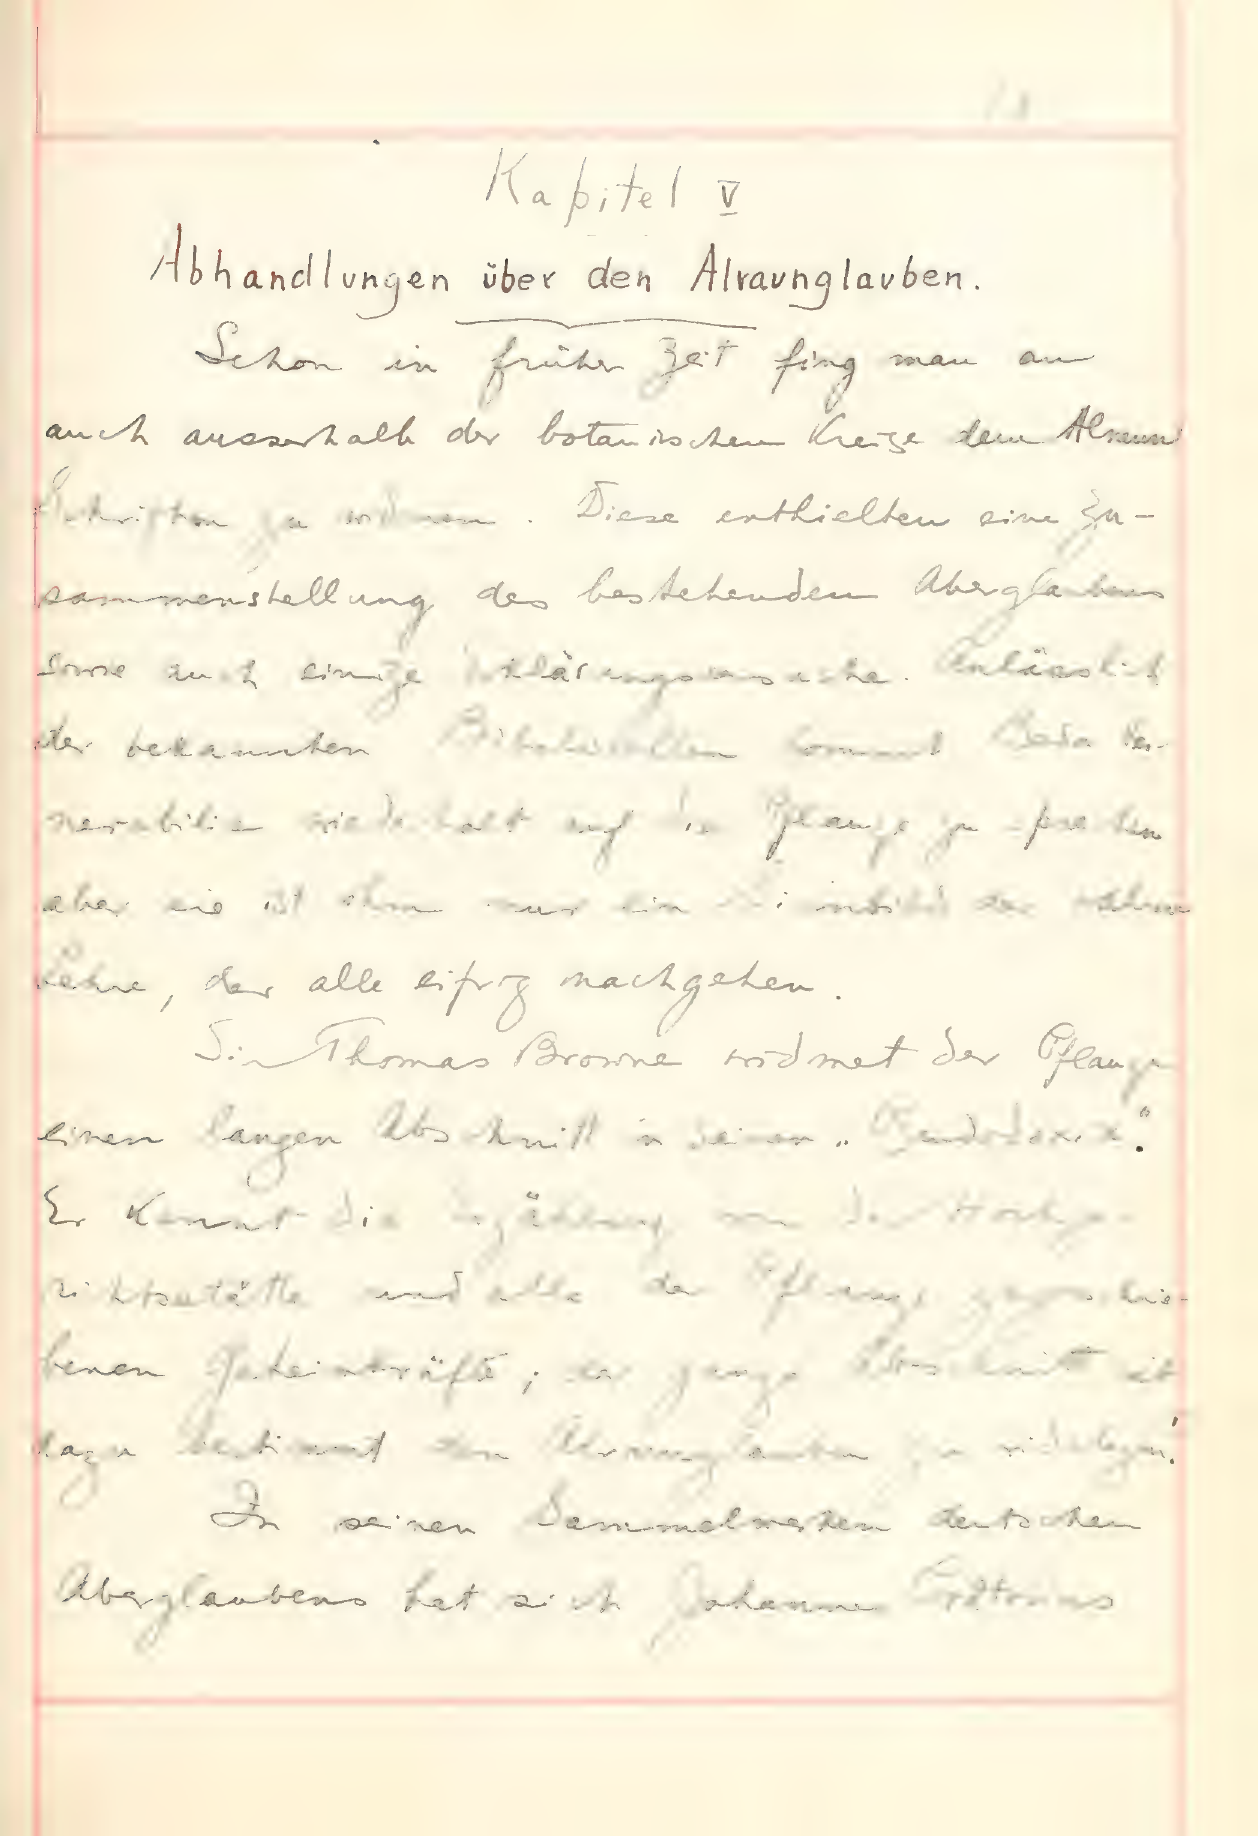 Kapitel V
Abhandlungen über den Alraunglauben.
Schon in früher Zeit fing man an
auch ausserhalb der botanischen Kreise dem Alraun
Schriften zu widmen. Diese enthielten eine Zu-
sammenstellung des bestehenden Aberglaubens
sowie auch einige Erklärungsversuche. Anlässlich
der bekannten Bibelstellen kommt Beda Ve-
nerabilis wiederholt auf die Pflanze zu sprechen
aber sie ist ihm nur ein Sinnbild der wahren
Lehre, der alle eifrig nachgehen.
Sir Thomas Browne widmet der Pflanze
einen langen Abschnitt in seinen „Pseudodoxia“.
Er kennt die Erzählung von der Hochge-
richtsstätte und alle der Pflanze zugeschrie-
benen Geheimkräfte; der ganze Abschnitt ist
dazu bestimmt den Alraunglauben zu widerlegen!
In seinen Sammelwerken deutschen
Aberglaubens hat sich Johannes